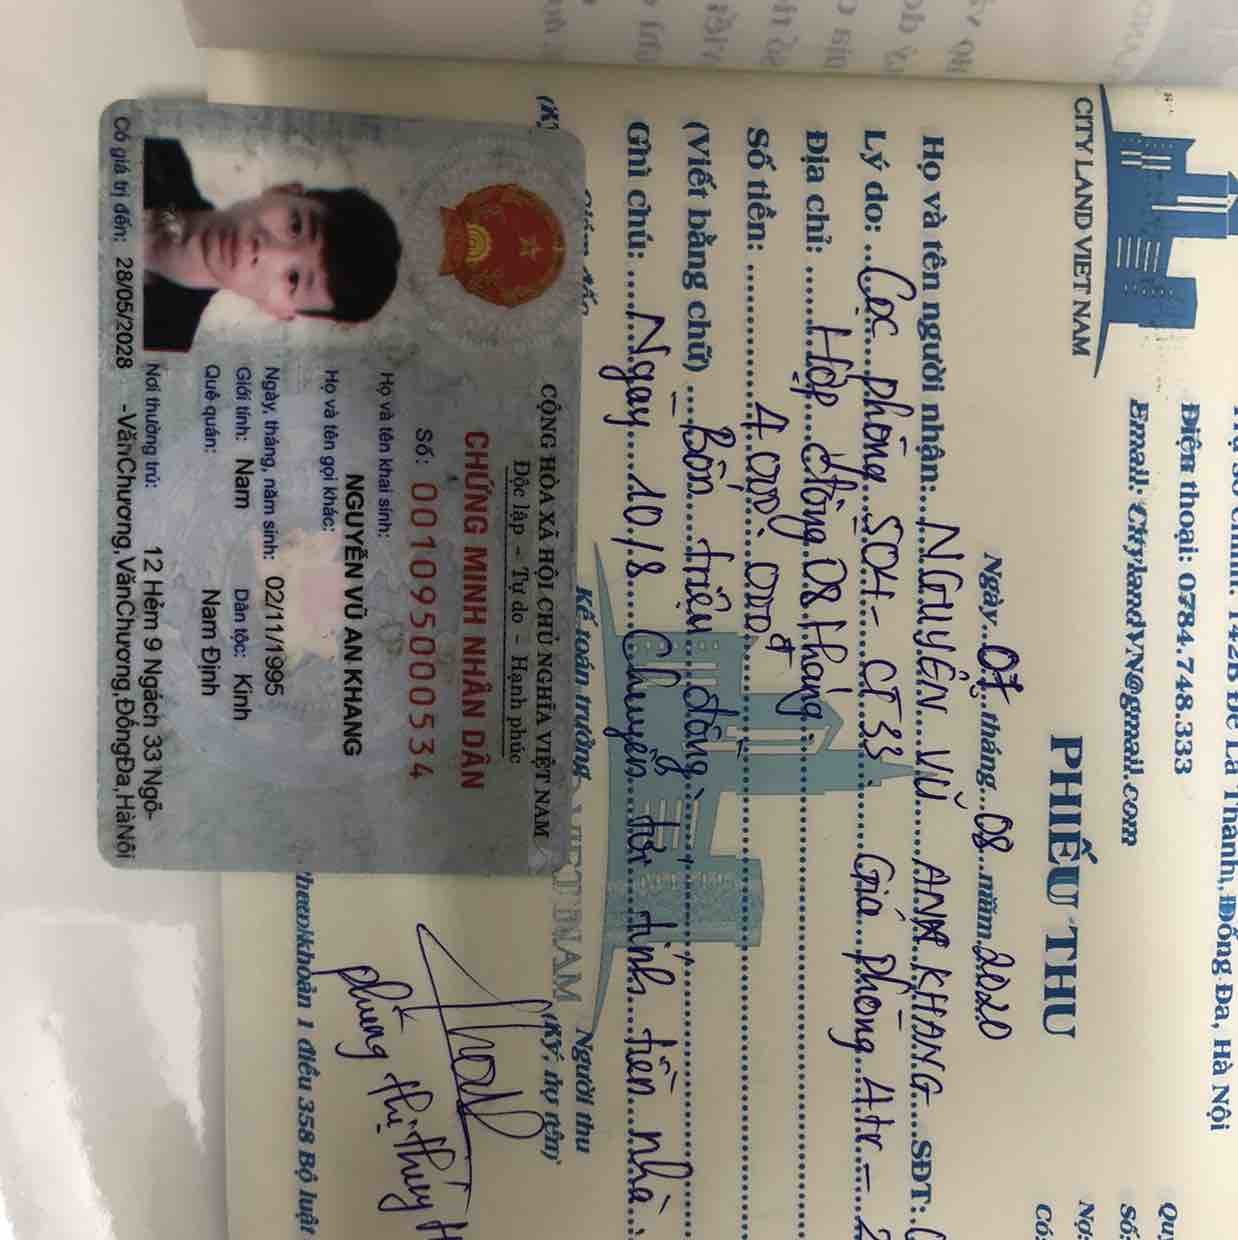 CITY LAND VIET NAM
Trụ sở chính: 142B Đê La Thành, Đống Đa, Hà Nội
Điện thoại: 0784.748.333
Email: CitylandVN@gmail.com
PHIẾU THU
Ngày 07 tháng 08 năm 2020
Họ và tên người nhận: NGUYỄN VŨ AN KHANG SĐT:
Lý do: Cọc phòng 504 - CT33. Giá phòng 4tr -
Địa chỉ: Hợp đồng 08 tháng.
Số tiền: 4.000.000đ
(Viết bằng chữ) Bốn triệu đồng
Ghi chú: Ngay 10/8 chuyển tới tính tiền nhà.
Kế toán trưởng
Người thu
(Ký, họ tên)
phùng thị thúy
khoản 1 điều 358 Bộ luật
CỘNG HÒA XÃ HỘI CHỦ NGHĨA VIỆT NAM
Độc lập - Tự do - Hạnh phúc
CHỨNG MINH NHÂN DÂN
Số: 001095000534
Họ và tên khai sinh:
NGUYỄN VŨ AN KHANG
Họ và tên gọi khác:
Ngày, tháng, năm sinh: 02/11/1995
Giới tính: Nam Dân tộc: Kinh
Quê quán: Nam Định
Nơi thường trú: 12 Hẻm 9 Ngách 33 Ngõ-
Có giá trị đến: 28/05/2028 -VănChương,VănChương,ĐốngĐa,HàNội